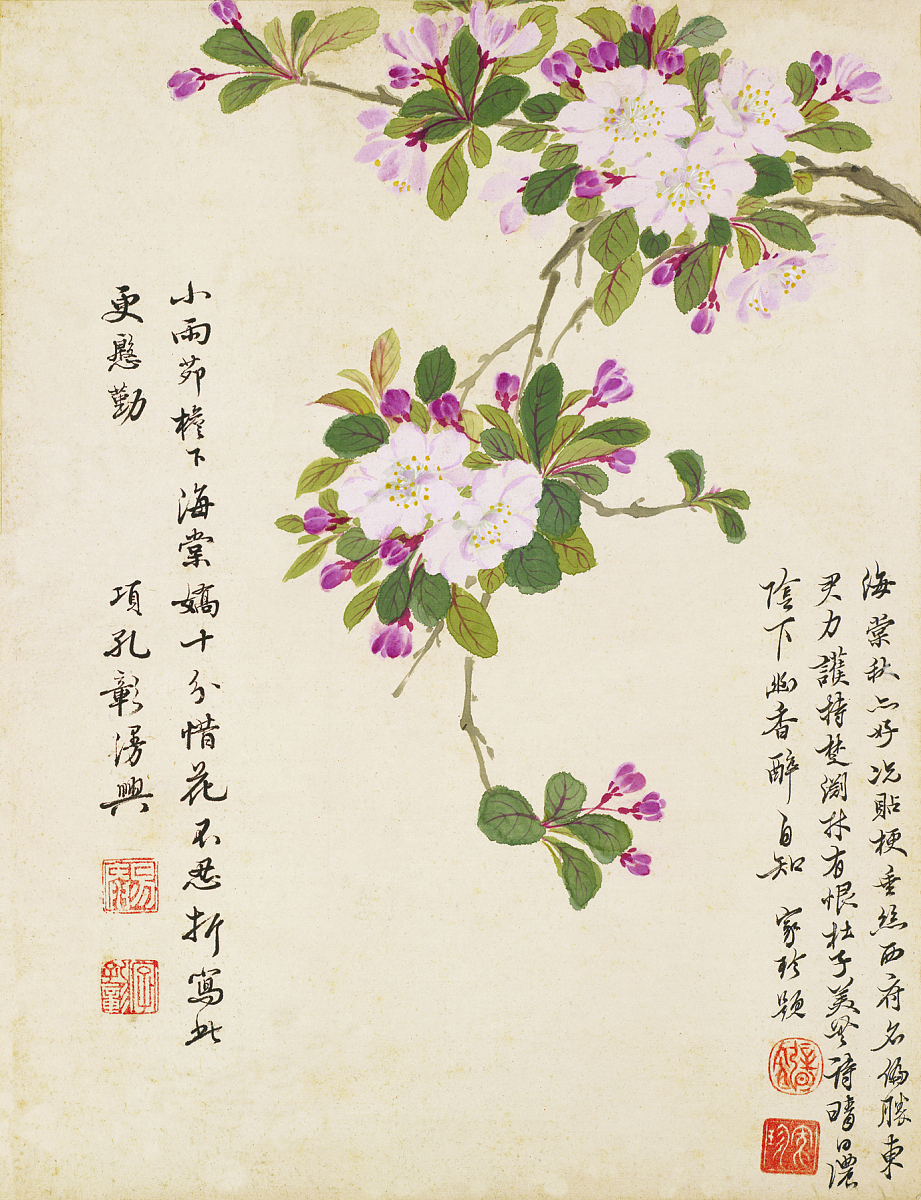 海棠秋亦好况貼梗垂絲西府名偏勝東
君力護持淵材有恨杜子美無詩晴日濃
陰下幽香醉自知 家珍題
小雨茆檐下海棠嬌十分惜花不忍折寫此
更慇勤 項孔彰漫興